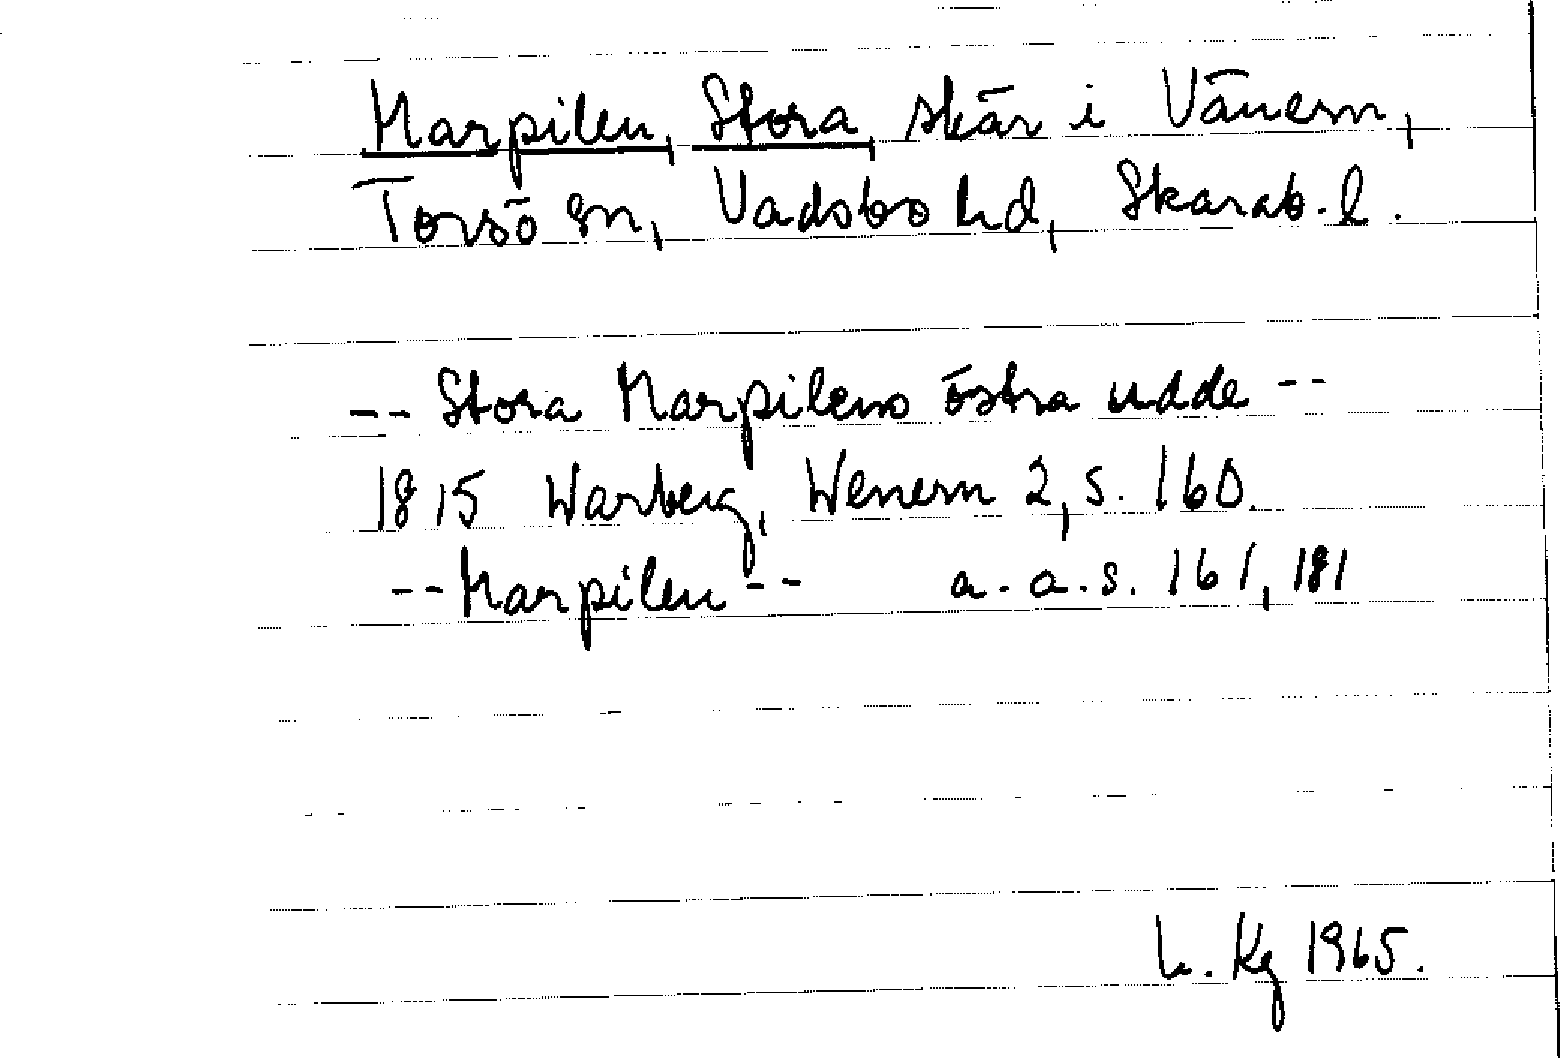 Marpilen, Stora, skär i Vänern,
Torsö sn, Vadsbo hd, Skarab. l.
-- Stora Marpilens östra udde --
1815 Warberg, Wenern 2, s. 160.
-- Marpilen -- a. a. s. 161, 181
L. Kg 1965.